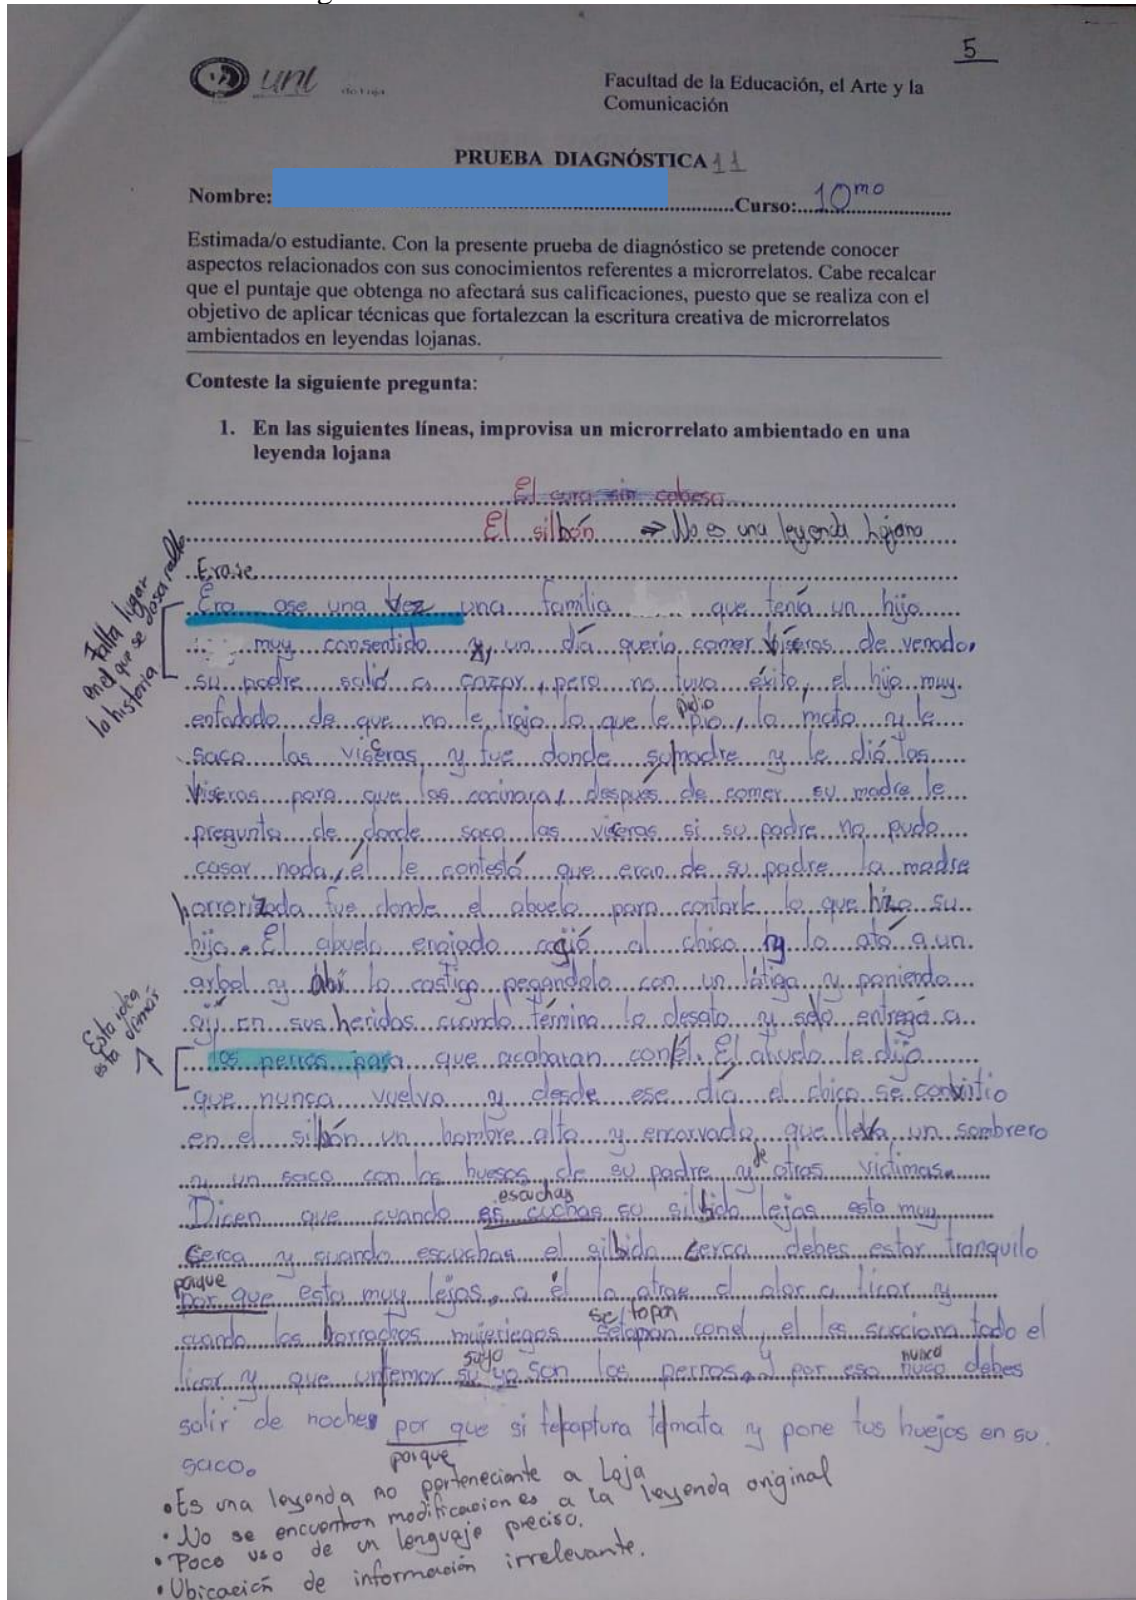 5
unl
de Loja
Facultad de la Educación, el Arte y la
Comunicación
PRUEBA DIAGNÓSTICA 11
Nombre: Curso: 10mo
Estimada/o estudiante. Con la presente prueba de diagnóstico se pretende conocer
aspectos relacionados con sus conocimientos referentes a microrrelatos. Cabe recalcar
que el puntaje que obtenga no afectará sus calificaciones, puesto que se realiza con el
objetivo de aplicar técnicas que fortalezcan la escritura creativa de microrrelatos
ambientados en leyendas lojanas.
Conteste la siguiente pregunta:
1. En las siguientes líneas, improvisa un microrrelato ambientado en una
leyenda lojana
El cura sin cabesa
El silbón ⇒ No es una leyenda lojana
Erase
Era ose una vez una familia que tenía un hijo
muy consentido y, un día queria comer víseras de venado,
su padre salió a cazar, pero no tuvo éxito, el hijo muy
enfadado de que no le trajo lo que le pio, lo mato y le
pidio
saco las viseras y fue donde su madre y le dió las
viseras para que las cocinara, después de comer su madre le
pregunta de donde saco las viseras si su padre no pudo
casar nada, él le contestó que eran de su padre la madre
horrorizada fue donde el abuelo para contarle lo que hizo su
hijo. El abuelo enojado cogió al chico y lo ató a un
arbol y ahí lo castigo pegandolo con un látigo y poniendo
ají en sus heridas cuando término lo desato y selo entregó a
los perros para que acabaran con él. El abuelo le dijo
que nunca vuelva y desde ese día el chico se convirtio
en el silbón un hombre alto y encorvado, que lleva un sombrero
y un saco con los huesos de su padre y de otras victimas.
Dicen que cuando es cuchas su silbido lejos esta muy
escuchas
cerca y cuando escuchas el silbido cerca debes estar tranquilo
porque
por que esta muy lejos, a él lo atrae el olor a licor y
cuando los borrachos mujeriegos setopan conel, el les succiona todo el
se topan
licor y que un temor su yo son los perros, y por eso nuco debes
suyo
nunca
salir de noches por que si te captura te mata y pone tus huejos en su
porque
saco.
Falta lugar
en el que se desarrolla
la historia
Esta idea
esta demás
• Es una leyenda no perteneciente a Loja
• No se encuentran modificaciones a la leyenda original
• Poco uso de un lenguaje preciso.
• Ubicación de información irrelevante.